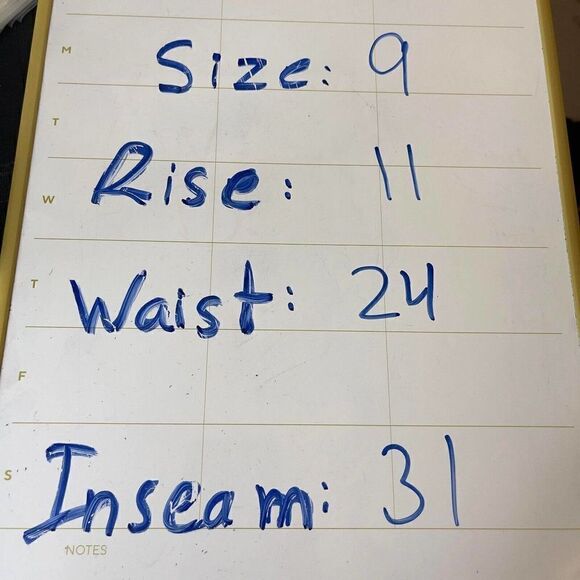 M
Size: 9
T
Rise: 11
W
Waist: 24
T
F
Inseam: 31
S
NOTES